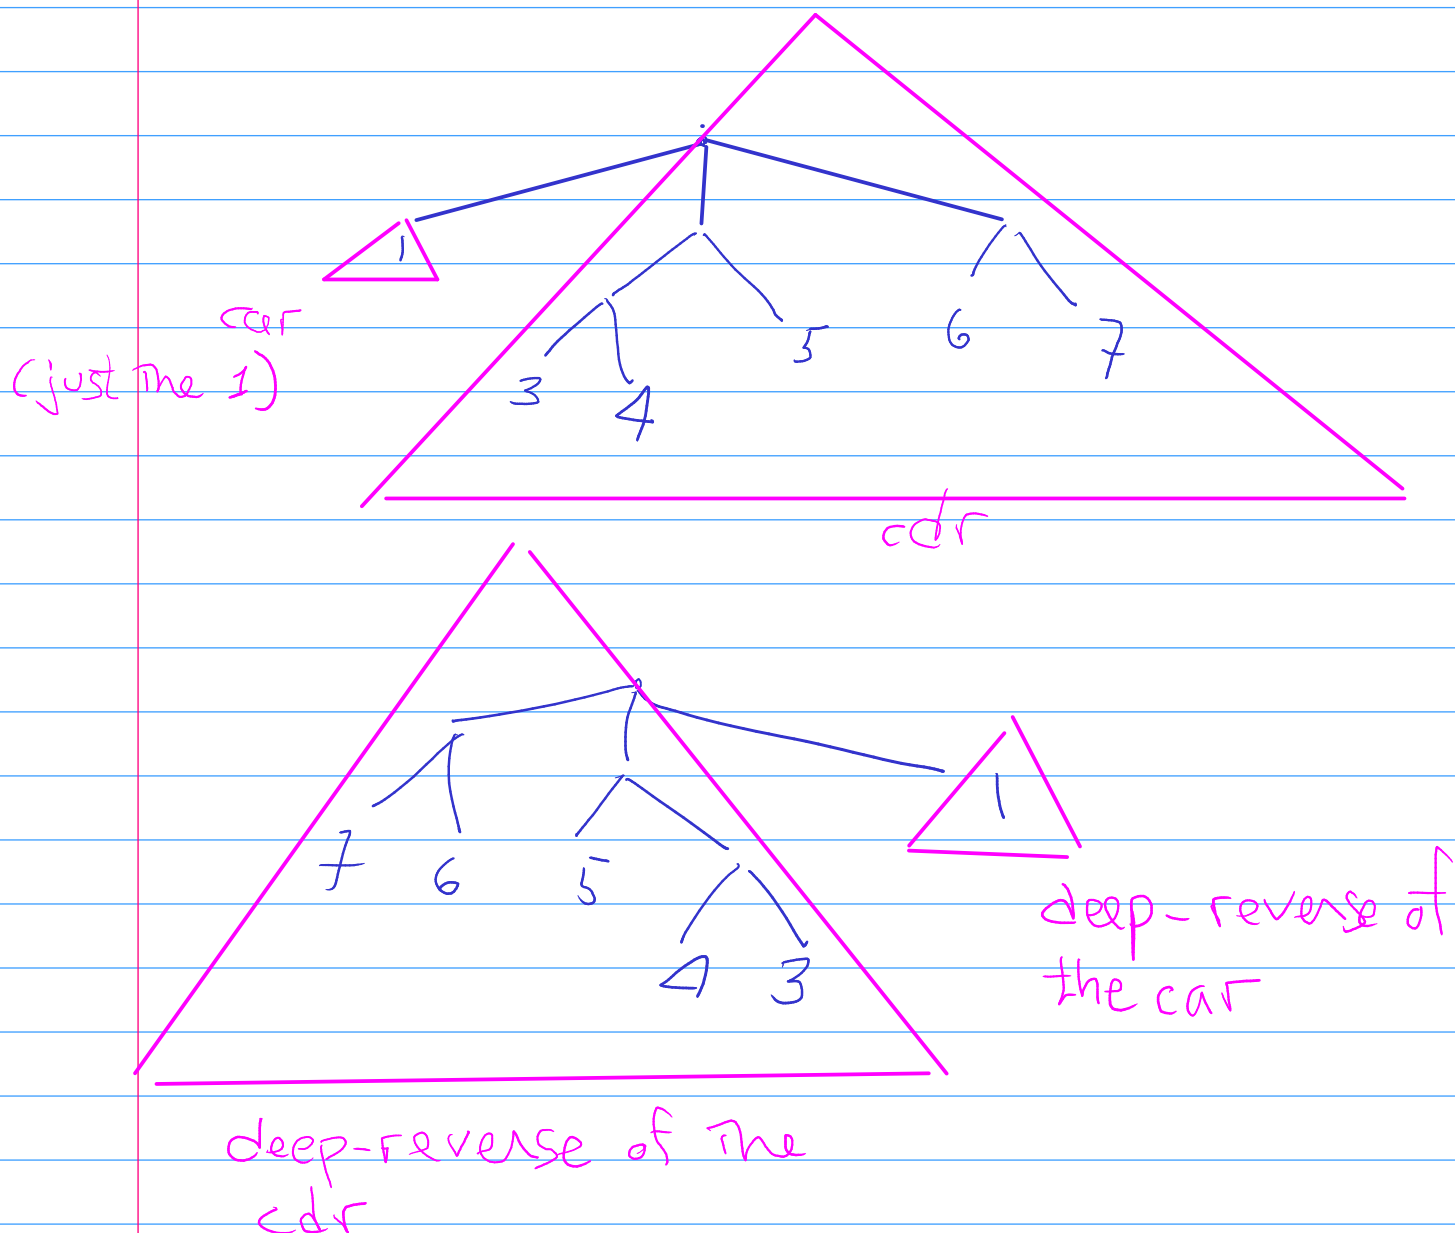 1
car
(just the 1)
3 4 5 6 7
cdr
7 6 5 4 3
1
deep-reverse of
the car
deep-reverse of the
cdr